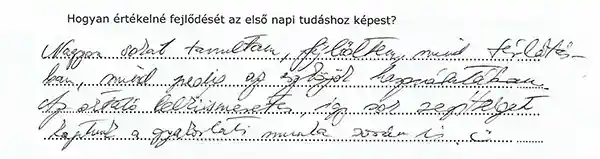 Hogyan értékelné fejlődését az első napi tudáshoz képest?
Nagyon sokat tanultam, fejlődtem, mind
ban, mind pedig az eszközök használatában.
Az oktató lelkiismeretes, így sok segítséget
kaptunk a gyakorlati munka során is. :)